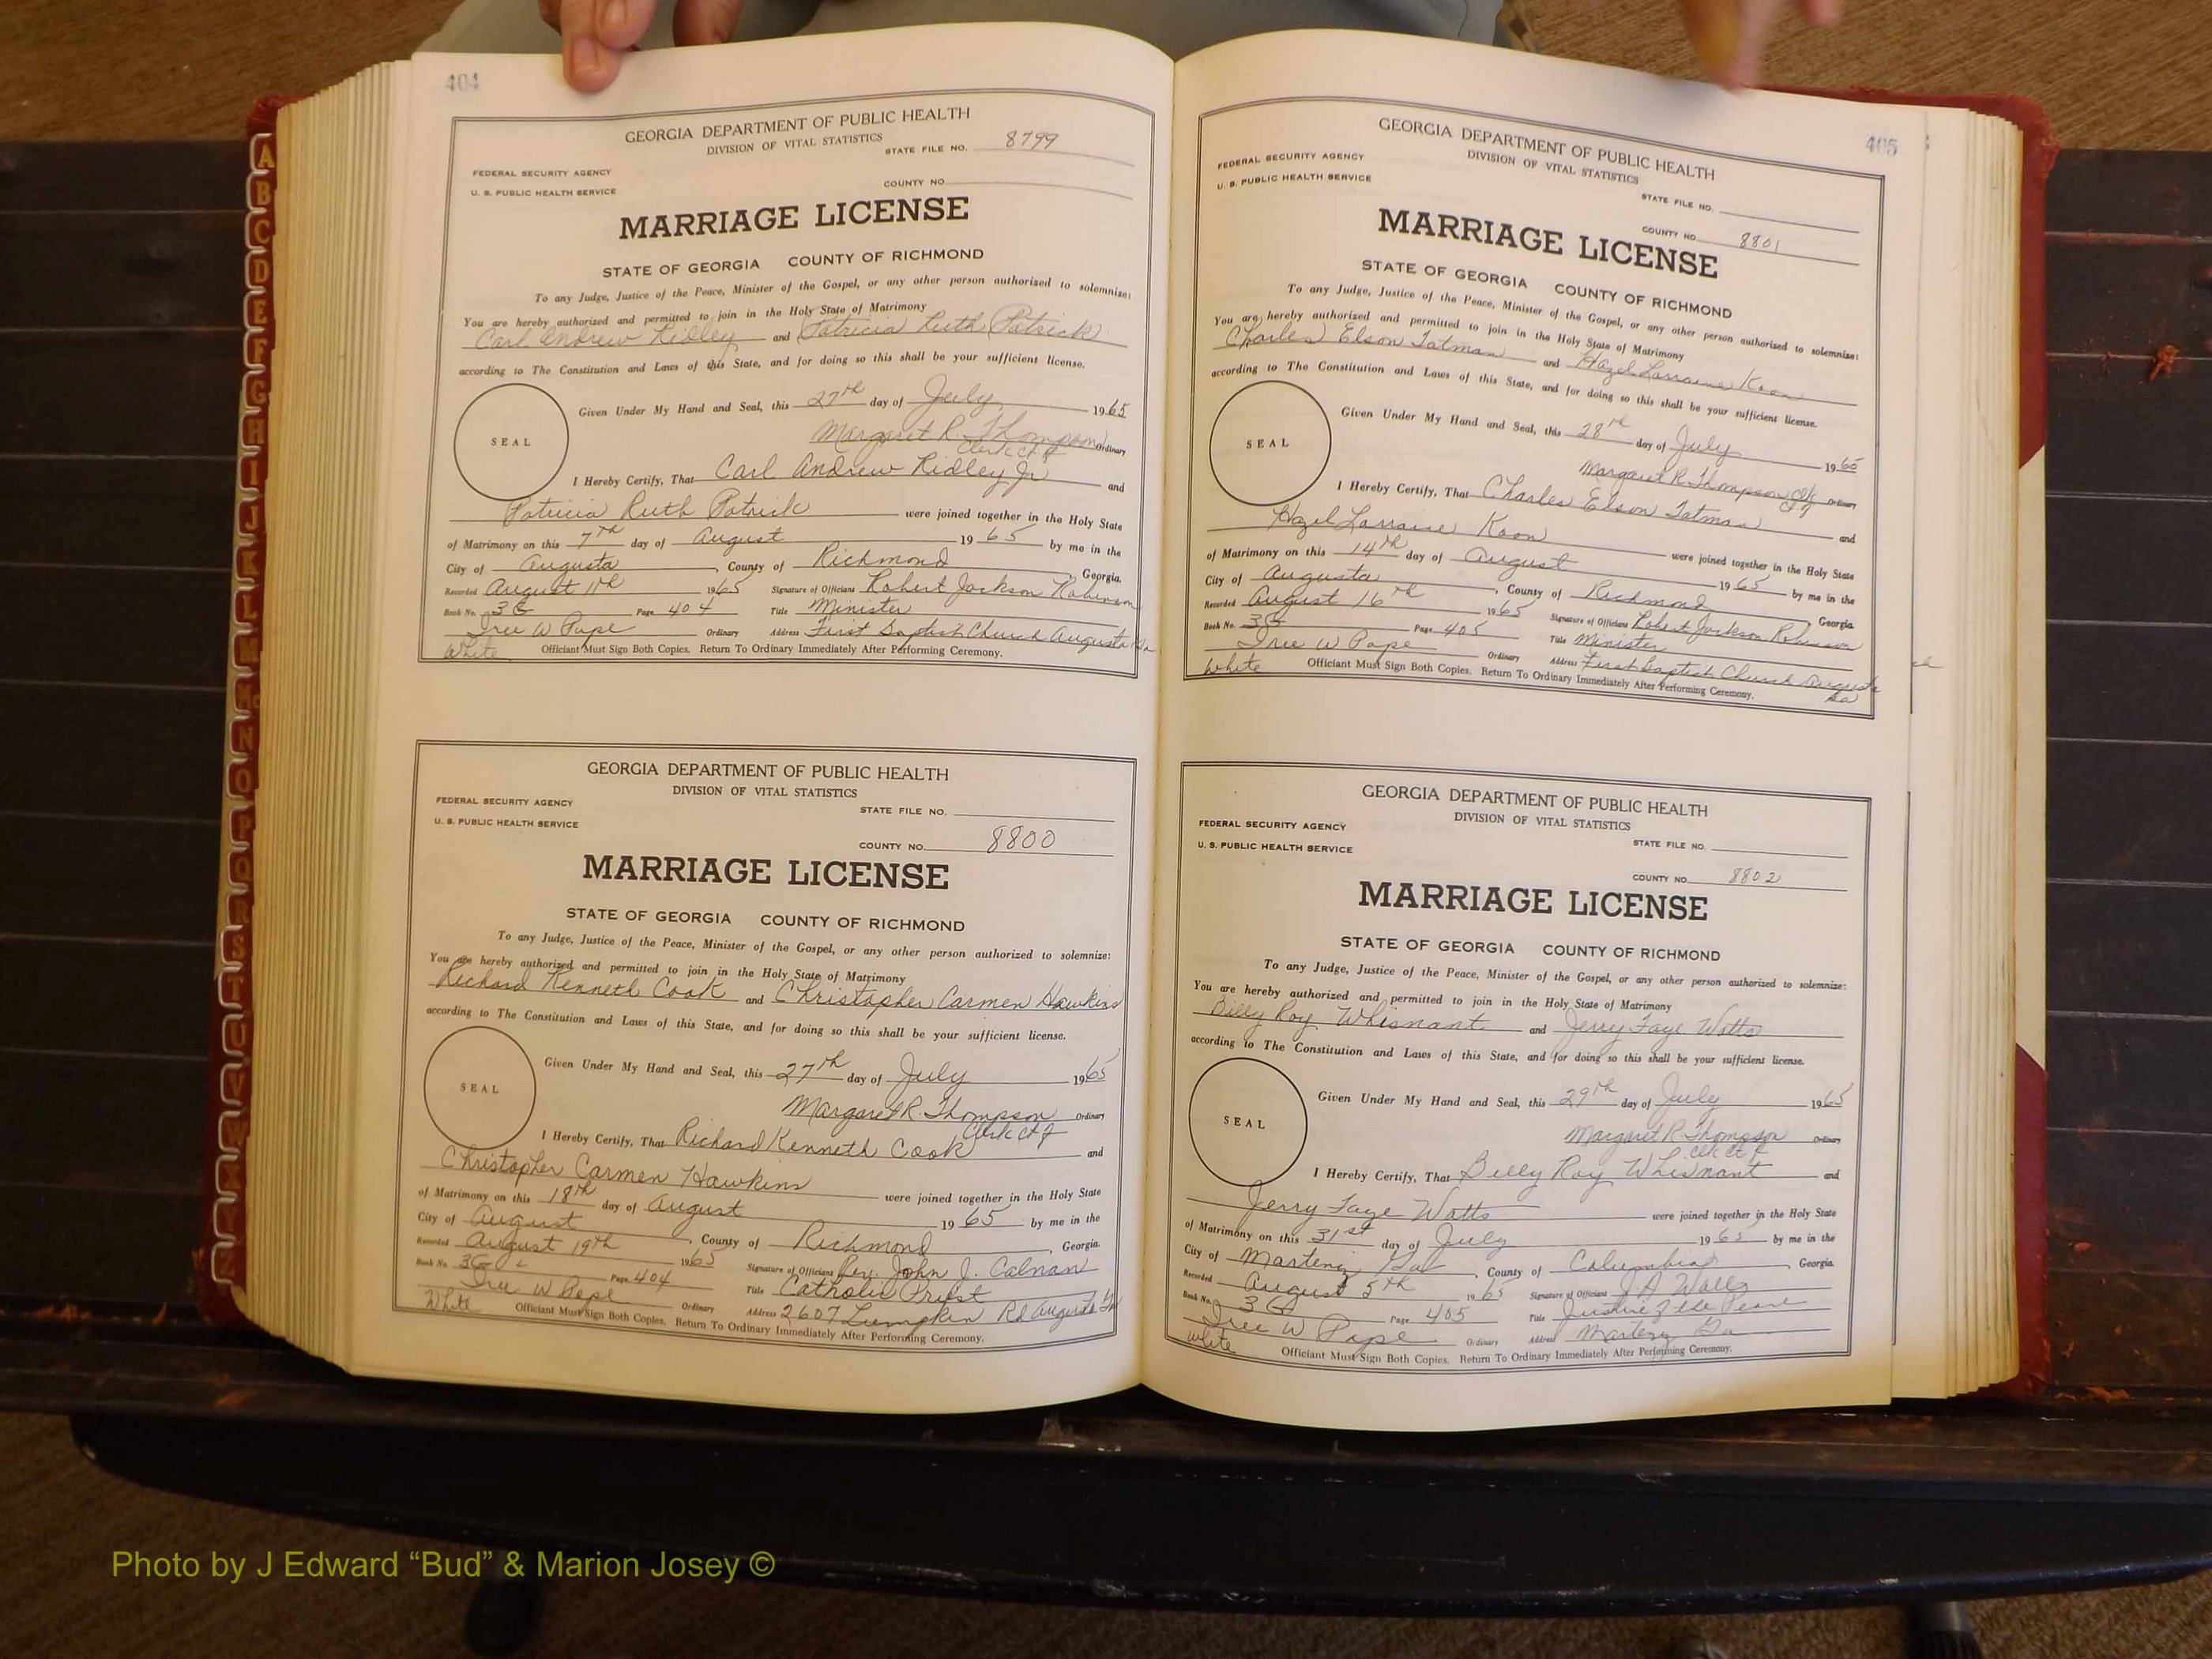 404
GEORGIA DEPARTMENT OF PUBLIC HEALTH
DIVISION OF VITAL STATISTICS
STATE FILE NO. 8799
FEDERAL SECURITY AGENCY
U. S. PUBLIC HEALTH SERVICE
COUNTY NO.
MARRIAGE LICENSE
STATE OF GEORGIA COUNTY OF RICHMOND
To any Judge, Justice of the Peace, Minister of the Gospel, or any other person authorized to solemnize:
You are hereby authorized and permitted to join in the Holy State of Matrimony
Carl Andrew Ridley and Patricia Ruth (Patrick)
according to The Constitution and Laws of this State, and for doing so this shall be your sufficient license.
SEAL
Given Under My Hand and Seal, this 27th day of July 1965
Margaret R. Thompson Ordinary
Clerk Ct
I Hereby Certify, That Carl Andrew Ridley Jr and
Patricia Ruth Patrick were joined together in the Holy State
of Matrimony on this 7th day of August 1965 by me in the
City of Augusta, County of Richmond, Georgia.
Recorded August 11th 1965 Signature of Officiant Robert Jackson Robinson
Book No. 3G Page 404 Title Minister
W Pape Ordinary Address First Baptist Church Augusta Ga
White Officiant Must Sign Both Copies. Return To Ordinary Immediately After Performing Ceremony.
GEORGIA DEPARTMENT OF PUBLIC HEALTH
DIVISION OF VITAL STATISTICS
FEDERAL SECURITY AGENCY
STATE FILE NO.
U. S. PUBLIC HEALTH SERVICE
COUNTY NO. 8800
MARRIAGE LICENSE
STATE OF GEORGIA COUNTY OF RICHMOND
To any Judge, Justice of the Peace, Minister of the Gospel, or any other person authorized to solemnize:
You are hereby authorized and permitted to join in the Holy State of Matrimony
Richard Kenneth Cook and Christopher Carmen Hawkins
according to The Constitution and Laws of this State, and for doing so this shall be your sufficient license.
SEAL
Given Under My Hand and Seal, this 27th day of July 1965
Margaret R. Thompson Ordinary
Clerk Ct
I Hereby Certify, That Richard Kenneth Cook and
Christopher Carmen Hawkins
were joined together in the Holy State
of Matrimony on this 18th day of August 1965 by me in the
City of August, County of Richmond, Georgia.
Recorded August 19th 1965 Signature of Officiant Rev. John J. Calnan
Book No. 3G Page 404 Title Catholic Priest
W Pape Ordinary Address 2607 Lumpkin Rd Augusta Ga
White Officiant Must Sign Both Copies. Return To Ordinary Immediately After Performing Ceremony.
405
GEORGIA DEPARTMENT OF PUBLIC HEALTH
DIVISION OF VITAL STATISTICS
FEDERAL SECURITY AGENCY
U. S. PUBLIC HEALTH SERVICE
STATE FILE NO.
COUNTY NO. 8801
MARRIAGE LICENSE
STATE OF GEORGIA COUNTY OF RICHMOND
To any Judge, Justice of the Peace, Minister of the Gospel, or any other person authorized to solemnize:
You are hereby authorized and permitted to join in the Holy State of Matrimony
Charles Elson Tatman and Hazel Larraine Koon
according to The Constitution and Laws of this State, and for doing so this shall be your sufficient license.
SEAL
Given Under My Hand and Seal, this 28th day of July 1965
Margaret R. Thompson Clk Ordinary
I Hereby Certify, That Charles Elson Tatman and
Hazel Larraine Koon were joined together in the Holy State
of Matrimony on this 14th day of August 1965 by me in the
City of Augusta, County of Richmond, Georgia.
Recorded August 16th 1965 Signature of Officiant Robert Jackson Robinson
Book No. 3G Page 405 Title Minister
W Pape Ordinary Address First Baptist Church Augusta Ga
White Officiant Must Sign Both Copies. Return To Ordinary Immediately After Performing Ceremony.
GEORGIA DEPARTMENT OF PUBLIC HEALTH
DIVISION OF VITAL STATISTICS
FEDERAL SECURITY AGENCY
STATE FILE NO.
U. S. PUBLIC HEALTH SERVICE
COUNTY NO. 8802
MARRIAGE LICENSE
STATE OF GEORGIA COUNTY OF RICHMOND
To any Judge, Justice of the Peace, Minister of the Gospel, or any other person authorized to solemnize:
You are hereby authorized and permitted to join in the Holy State of Matrimony
Billy Roy Whisnant and Jerry Faye Watts
according to The Constitution and Laws of this State, and for doing so this shall be your sufficient license.
SEAL
Given Under My Hand and Seal, this 29th day of July 1965
Margaret R. Thompson Ordinary
Clk Ct
I Hereby Certify, That Billy Roy Whisnant and
Jerry Faye Watts were joined together in the Holy State
of Matrimony on this 31st day of July 1965 by me in the
City of Martinez Ga, County of Columbia, Georgia
Recorded August 5th 1965 Signature of Officiant
Book No. 3G Page 405 Title Justice of the Peace
W Pape Ordinary Address Martinez Ga
White Officiant Must Sign Both Copies. Return To Ordinary Immediately After Performing Ceremony.
A
B
C
D
E
F
G
H
I
J
K
L
M
Mc
N
O
P
Q
R
S
T
U
V
W
X
Y
Z
Photo by J Edward “Bud” & Marion Josey ©